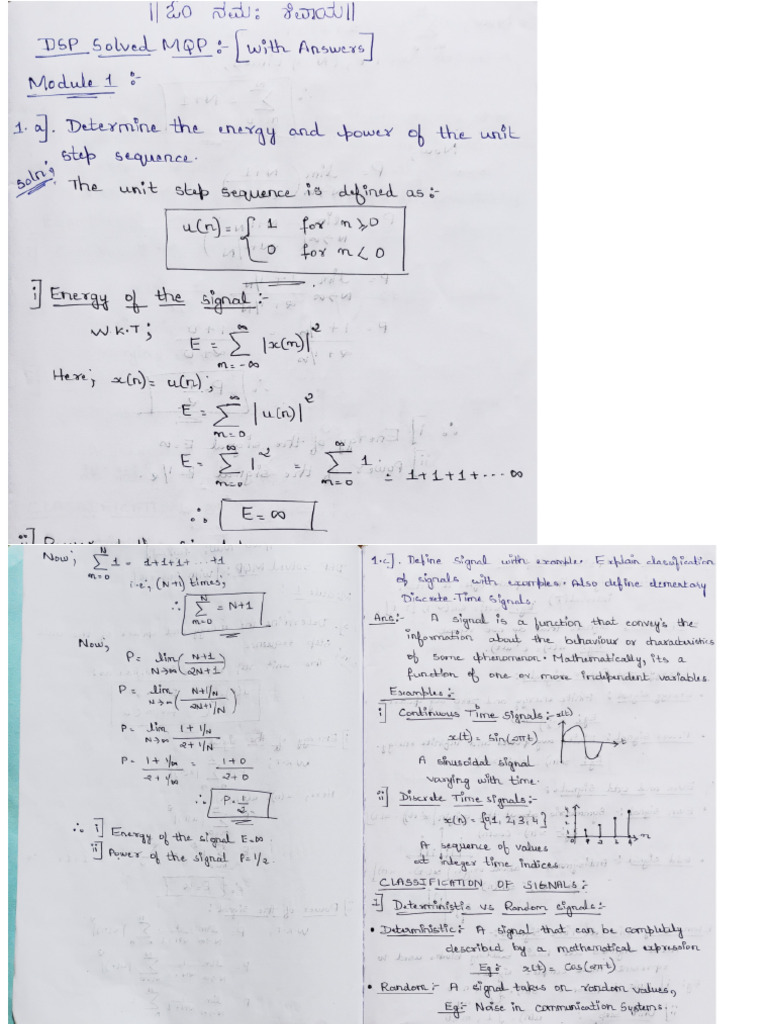 || ಓಂ ನಮಃ ಶಿವಾಯ ||
DSP Solved MQP :- [with Answers]
Module 1 :-
1. a]. Determine the energy and power of the unit
step sequence.
Soln:
The unit step sequence is defined as :-
u(n) = { 1 for n ≥ 0
0 for n < 0
i] Energy of the signal :-
W.K.T;
E = ∑_{n=-∞}^{∞} |x(n)|²
Here; x(n) = u(n);
E = ∑_{n=0}^{∞} |u(n)|²
E = ∑_{n=0}^{∞} 1² = ∑_{n=0}^{∞} 1 = 1+1+1+ ... ∞
∴ E = ∞
Now; ∑_{n=0}^{N} 1 = 1+1+1+ ... +1
i.e; (N+1) times;
∴ ∑_{n=0}^{N} = N+1
Now;
P = lim_{N→∞} (N+1 / 2N+1)
P = lim_{N→∞} (N+1/N / 2N+1/N)
P = lim_{N→∞} 1+1/N / 2+1/N
P = 1+1/∞ / 2+1/∞ = 1+0 / 2+0
∴ P = 1/2
∴ i] Energy of the signal E=∞
ii] Power of the signal P=1/2.
1.c]. Define signal with example. Explain classification
of signals with examples. Also define elementary
Discrete-Time Signals.
Ans:- A signal is a function that convey's the
information about the behaviour or characteristics
of some phenomenon. Mathematically, its a
function of one or more independent variables.
Examples:-
i] Continuous Time Signals:- x(t)
x(t) = sin(2πt) t
A sinusoidal signal
varying with time.
ii] Discrete Time signals:-
x(n) = {0,1,2,3,4} n
A sequence of values
at integer time indices.
CLASSIFICATION OF SIGNALS:-
1] Deterministic vs Random signals:-
• Deterministic:- A signal that can be completely
described by a mathematical expression
Eg:- x(t) = Cos(2πt)
• Random:- A signal takes on random values,
Eg:- Noise in communication Systems.